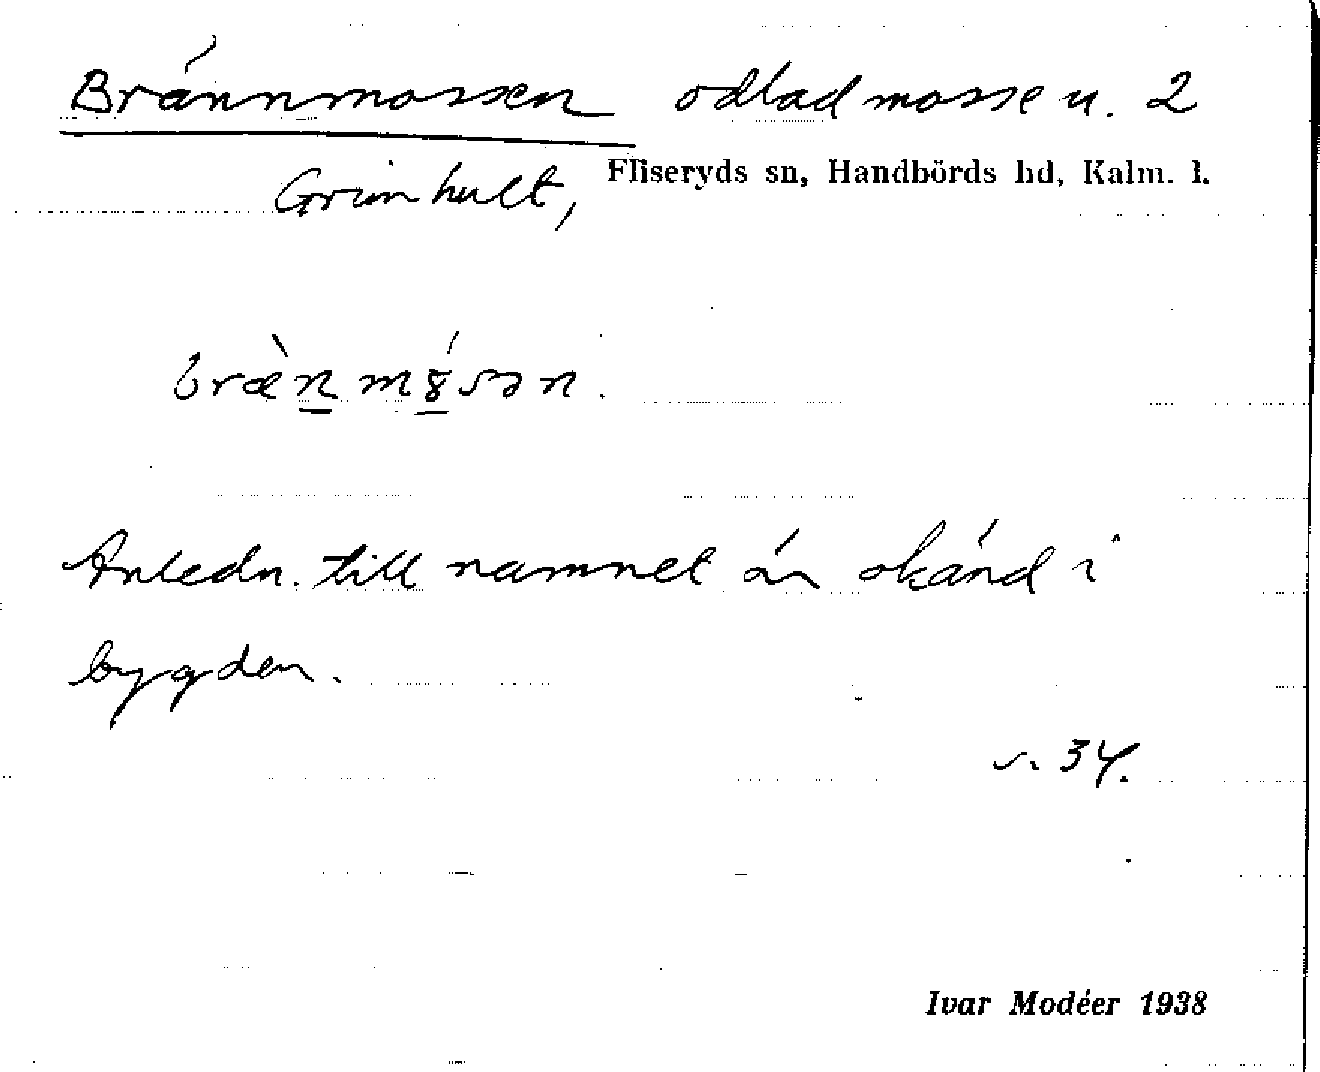 Brännmossen odlad mosse u. 2
Grimhult, Fliseryds sn, Handbörds hd, Kalm. l.
bræ̀n̲mɣ̲́sən.
Anledn. till namnet är okänd i
bygden.
s. 34.
Ivar Modéer 1938